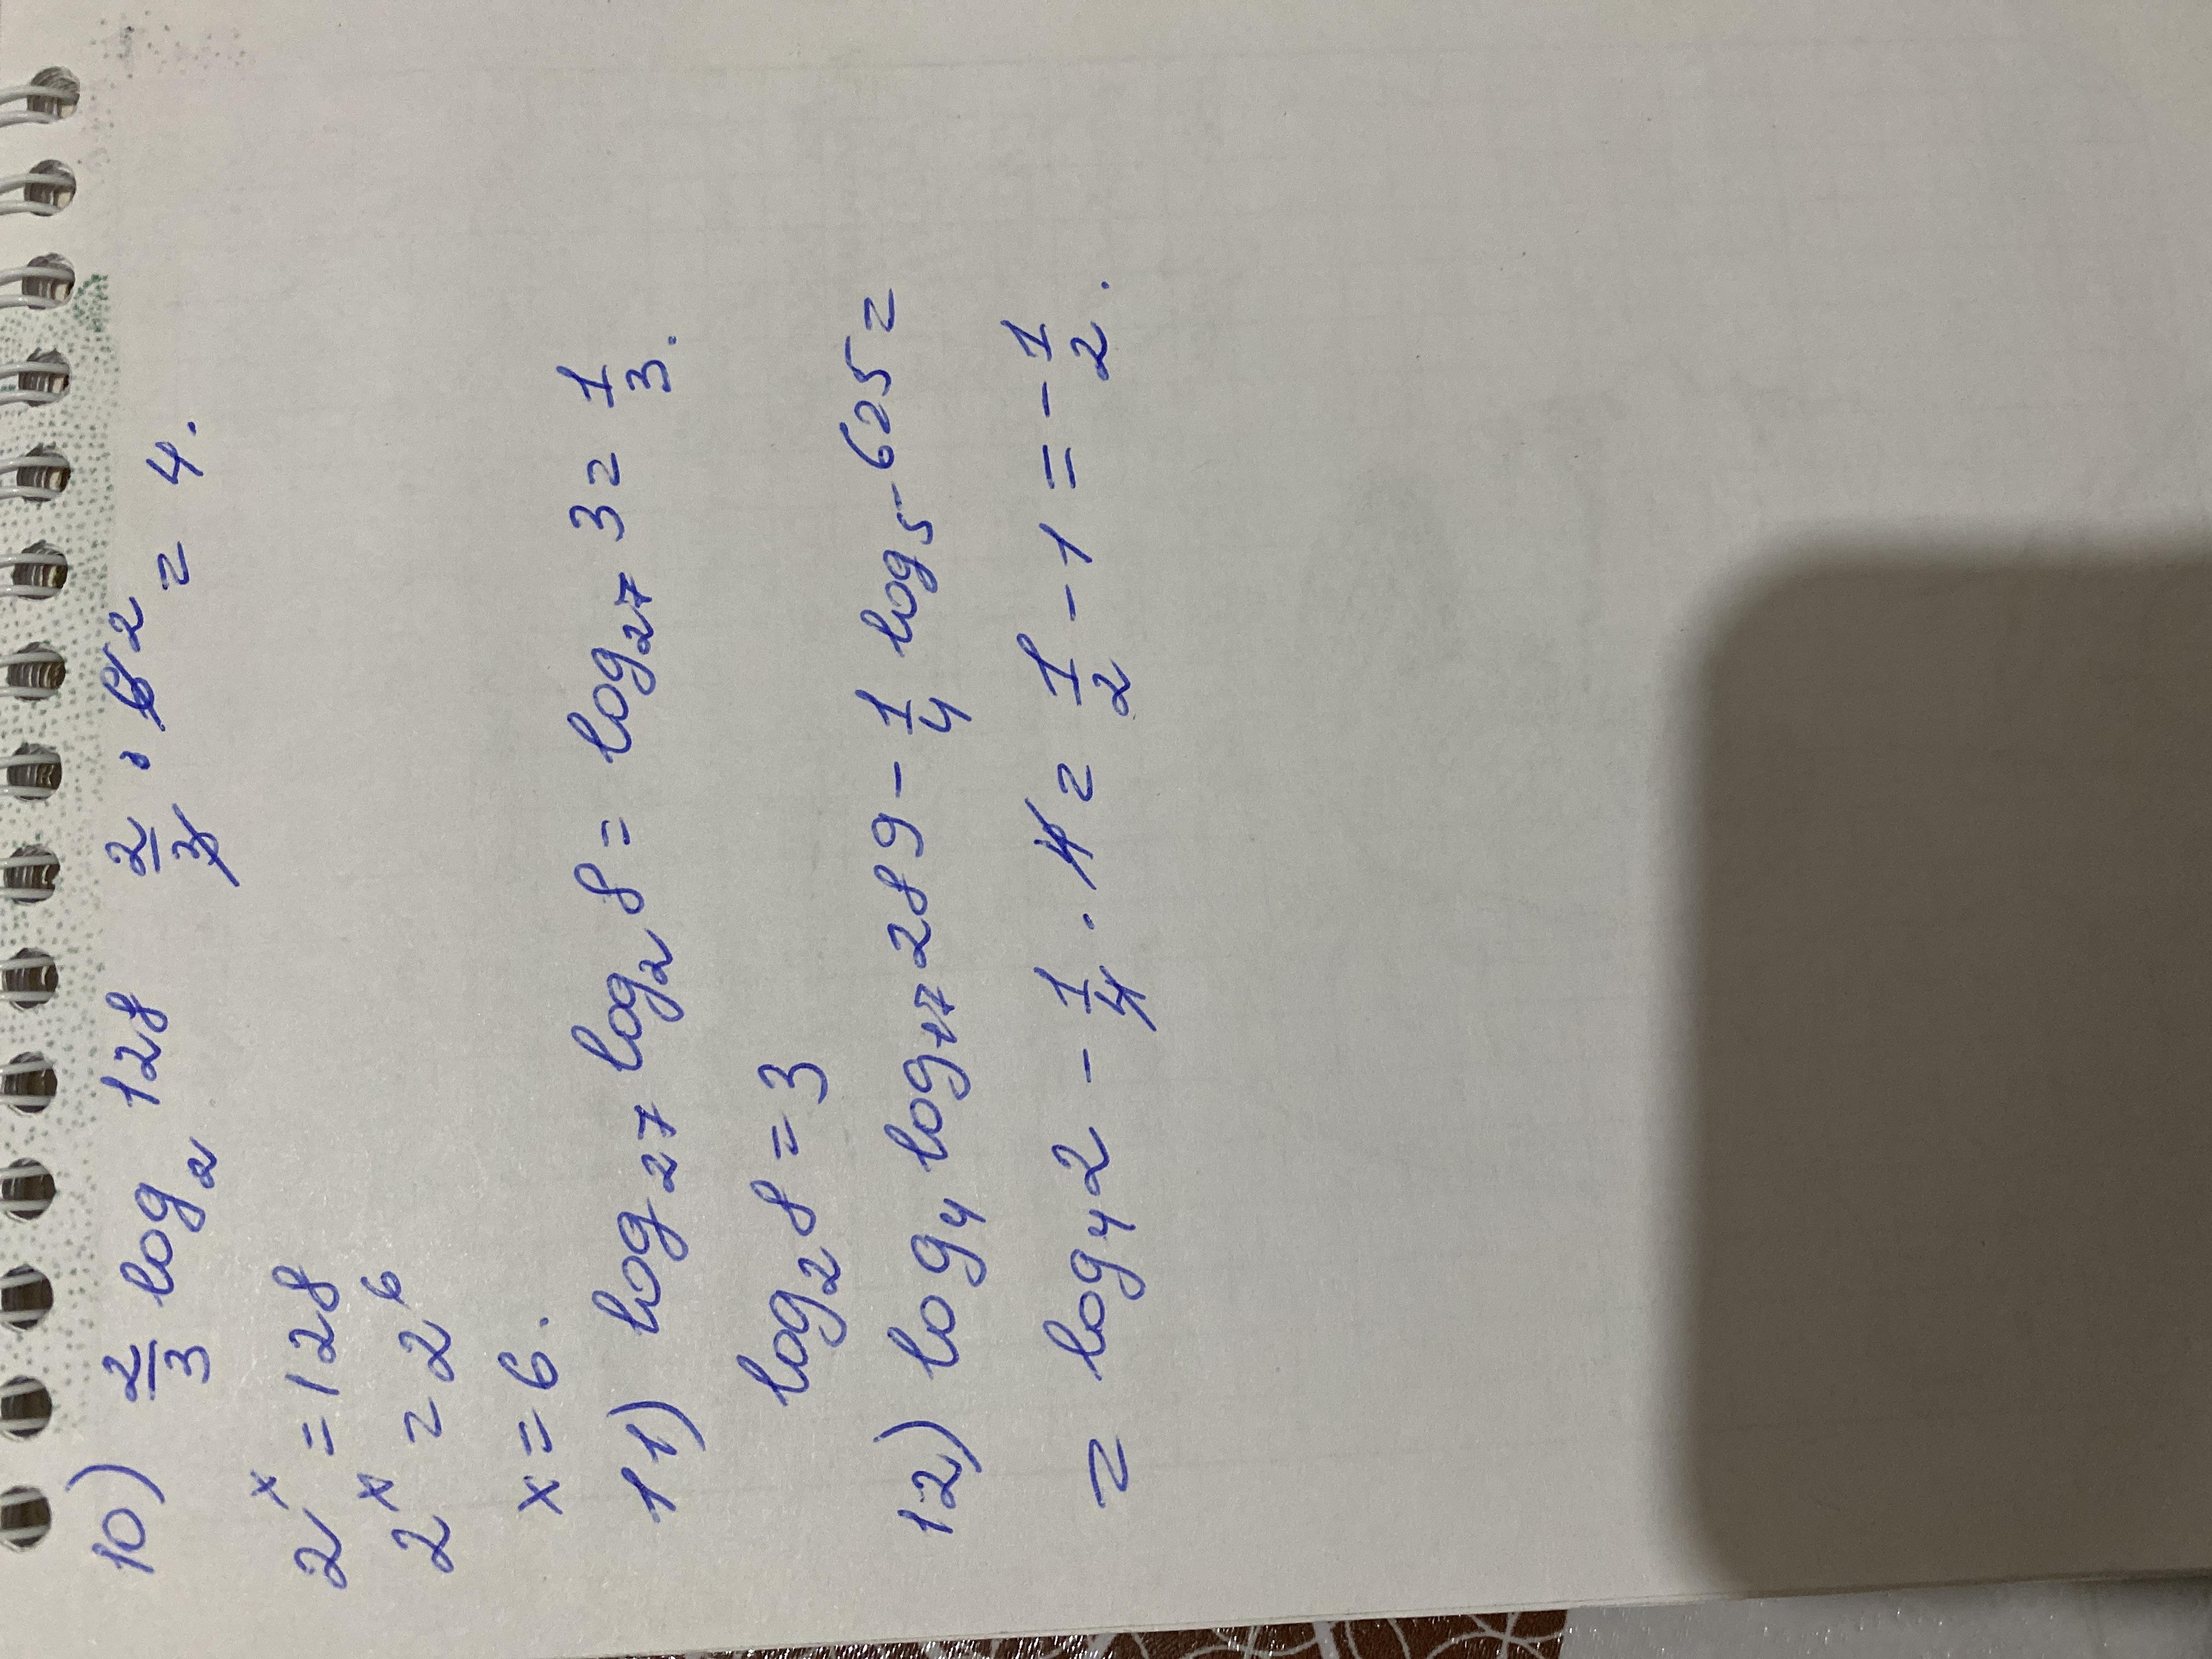 10) 2/3 log₂ 128   2/3 · 6 2 = 4.
2ˣ = 128
2ˣ = 2⁶
x = 6.
11) log₂₇ log₂ 8 = log₂₇ 3 = 1/3.
log₂ 8 = 3
12) log₄ log₁₇ 289 - 1/4 log₅ 625 =
= log₄ 2 - 1/4 · 4 = 1/2 - 1 = - 1/2.